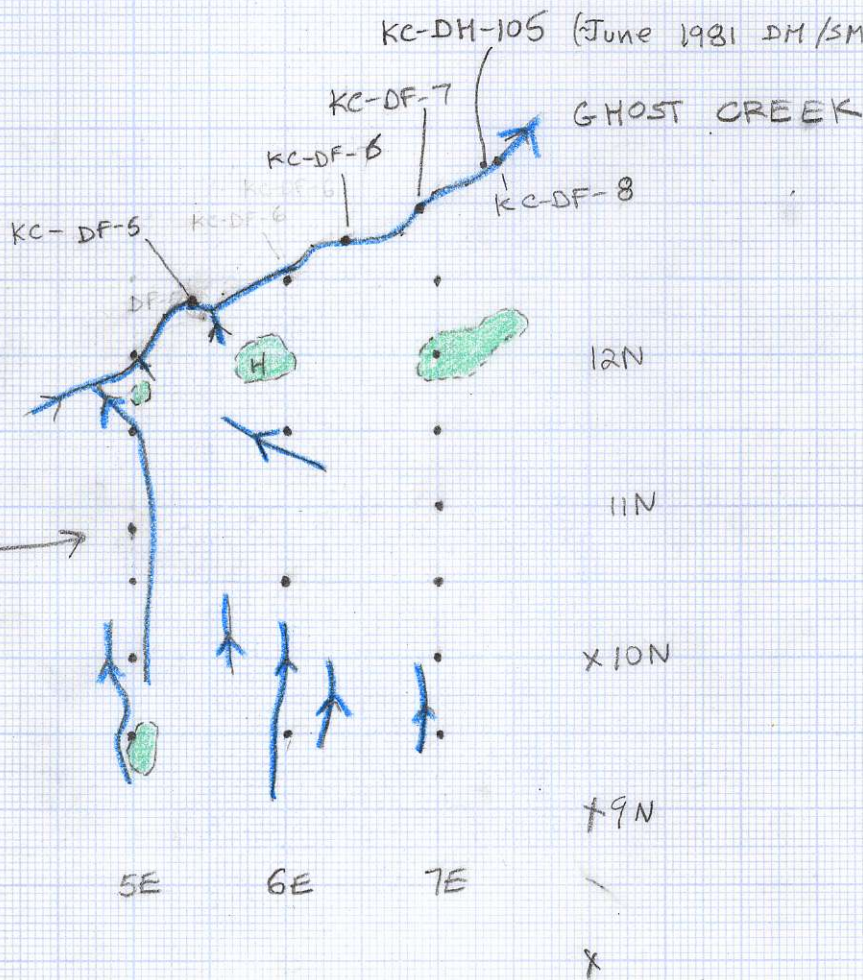 KC-DH-105 (June 1981 DM/SM
GHOST CREEK
KC-DF-7
KC-DF-6
KC-DF-6
KC-DF-8
KC-DF-5
KC-DF-6
H
12N
11N
X10N
X9N
5E
6E
7E
X